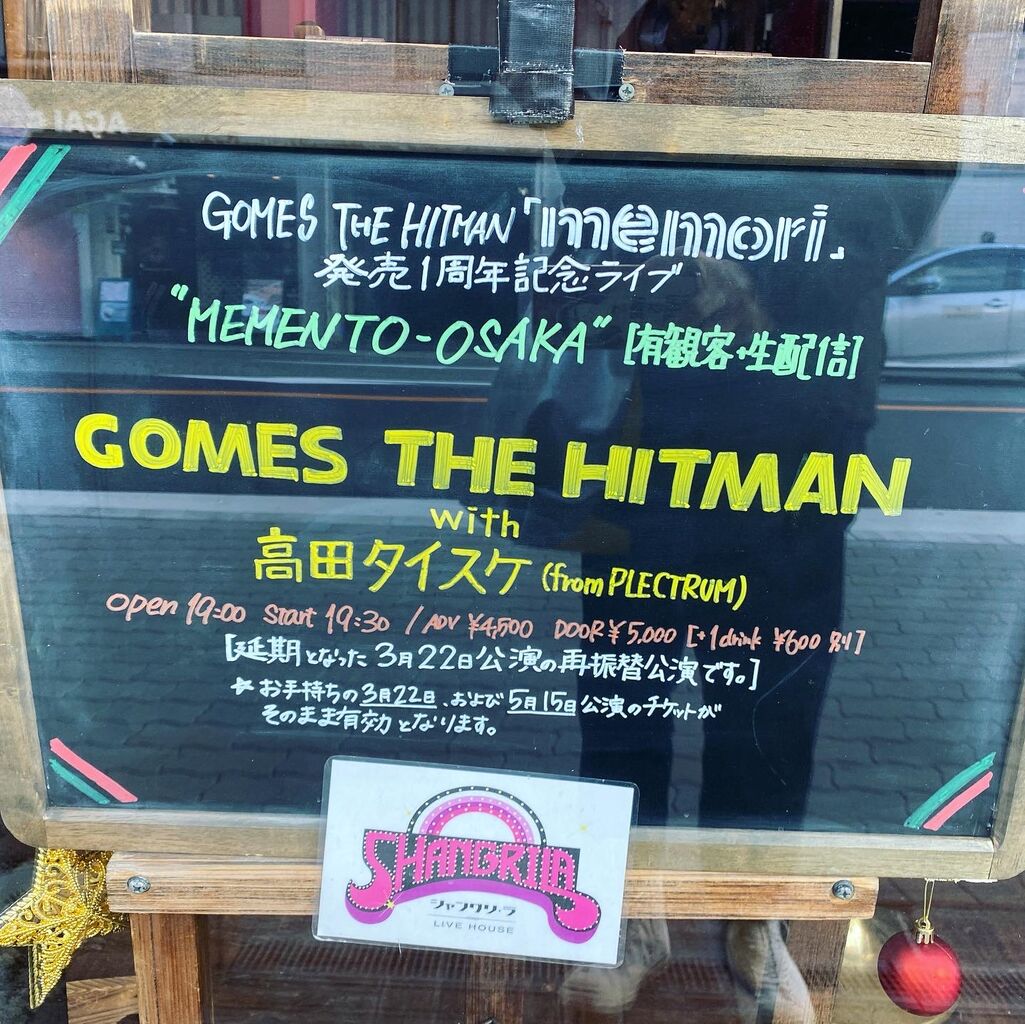 AÇAI
GOMES THE HITMAN「memori」
発売1周年記念ライブ
"MEMENTO-OSAKA" [有観客+生配信]
GOMES THE HITMAN
with
高田タイスケ (from PLECTRUM)
open 19:00 start 19:30 / ADV ¥4,500 DOOR ¥5,000 [+1drink ¥600 別]
[延期となった3月22日公演の再振替公演です。]
★お手持ちの3月22日、および5月15日公演のチケットが
そのまま有効となります。
SHANGRILA
シャングリ・ラ
LIVE HOUSE